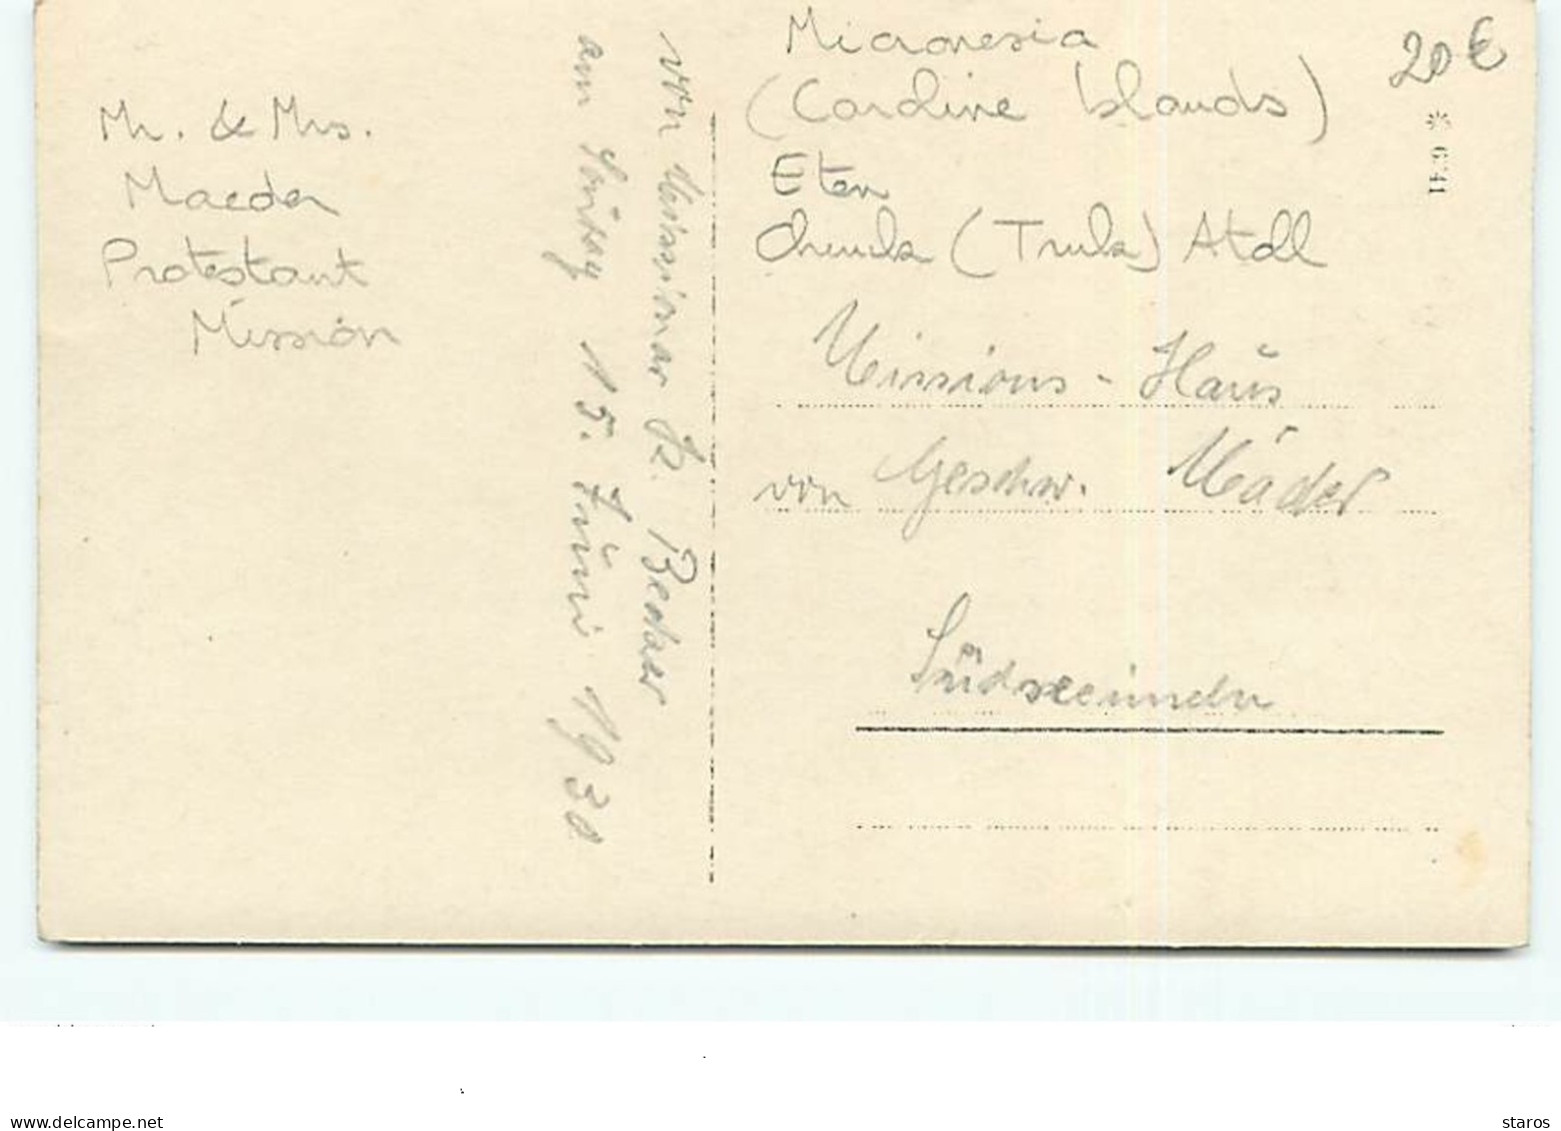 Mr. & Mrs.
Maeder
Protestant
Mission
von Missionar
am 15. Juni 193
Micronesia
(Caroline Islands)
Eten
Chuuk (Truk) Atoll
Missions - Haus
von Geschw. Mäder
20 €
www.delcampe.net
staros